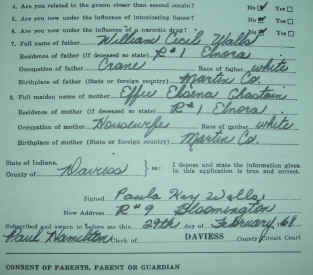 4. Are you related to the groom closer than second cousin? No ☑ Yes ☐
5. Are you now under the influence of intoxicating liquor? No ☑ Yes ☐
6. Are you now under the influence of a narcotic drug? No ☑ Yes ☐
7. Full name of father William Cecil Walls
Residence of father (if deceased so state) R#1 Elnora
Occupation of father Crane Race of father white
Birthplace of father (State or foreign country) Martin Co.
8. Full maiden name of mother Effie Chastain
Residence of mother (if deceased so state) R#1 Elnora
Occupation of mother Housewife Race of mother white
Birthplace of mother (State or foreign country) Martin Co.
State of Indiana, I depose and state the information given
County of Daviess ss: in this application is true and correct.
Signed Paula Kay Walls
New Address R#9 Bloomington
Subscribed and sworn to before me this 29th day of February, 68
Paul Hamilton Clerk of DAVIESS County Circuit Court
CONSENT OF PARENTS, PARENT OR GUARDIAN